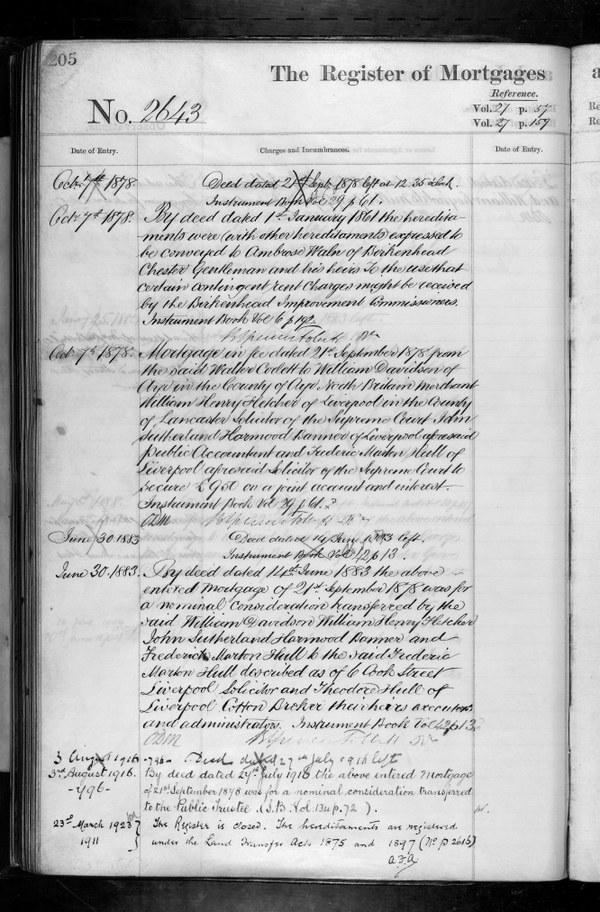 205
The Register of Mortgages
Reference.
No. 2643
Vol. 27 p. 57
Vol. 27 p. 159
Date of Entry.
Charges and Incumbrances.
Octr 7th 1878.
Deed dated 21st Septr 1878 left at 12.35 o'clock.
Instrument Book Vol. 29 p 61.
Octr 7th 1878.
By deed dated 1st January 1861 the heredita-
ments were (with other hereditaments) expressed to
be conveyed to Ambrose Waln of Birkenhead
Chester Gentleman and his heirs To the use that
certain contingent rent Charges might be received
by the Birkenhead Improvement Commissioners.
Instrument Book Vol 6 p 192
Octr 7th 1878.
Mortgage in fee dated 21st September 1878 from
the said Walter to William Davidson of
Ayr in the County of Ayr North Britain Merchant
William Henry Fletcher of Liverpool in the County
of Lancaster Solicitor of the Supreme Court John
Sutherland Harmood Banner of Liverpool aforesaid
Public Accountant and Frederic Morton Hull of
Liverpool aforesaid Solicitor of the Supreme Court to
Secure £900 on a joint account and interest.
Instrument Book Vol 29 p 61.
June 30 1883
Deed dated 14 June 1883 left.
Instrument Book Vol 42 p 13.
June 30. 1883.
By deed dated 14th June 1883 the above
entered Mortgage of 21st September 1878 was for
a nominal consideration transferred by the
said William Davidson William Henry Fletcher
John Sutherland Harmood Banner and
Frederick Morton Hull to the said Frederic
Morton Hull described as of 6 Cook Street
Liverpool Solicitor and Theodore Hull of
Liverpool Cotton Broker their heirs executors
and administrators. Instrument Book Vol 42 p 13.
3 August 1916
-796- Deed dated 27th July 1916 left
3rd August 1916.
-796-
By deed dated 27th July 1916 the above entered Mortgage
of 21st September 1878 was for a nominal consideration transferred
to the Public Trustee (I.B. Vol. 134 p. 72).
23rd March 1923
1911
The Register is closed. The hereditaments are registered
under the Land Transfer Acts 1875 and 1897 (No p 2616)